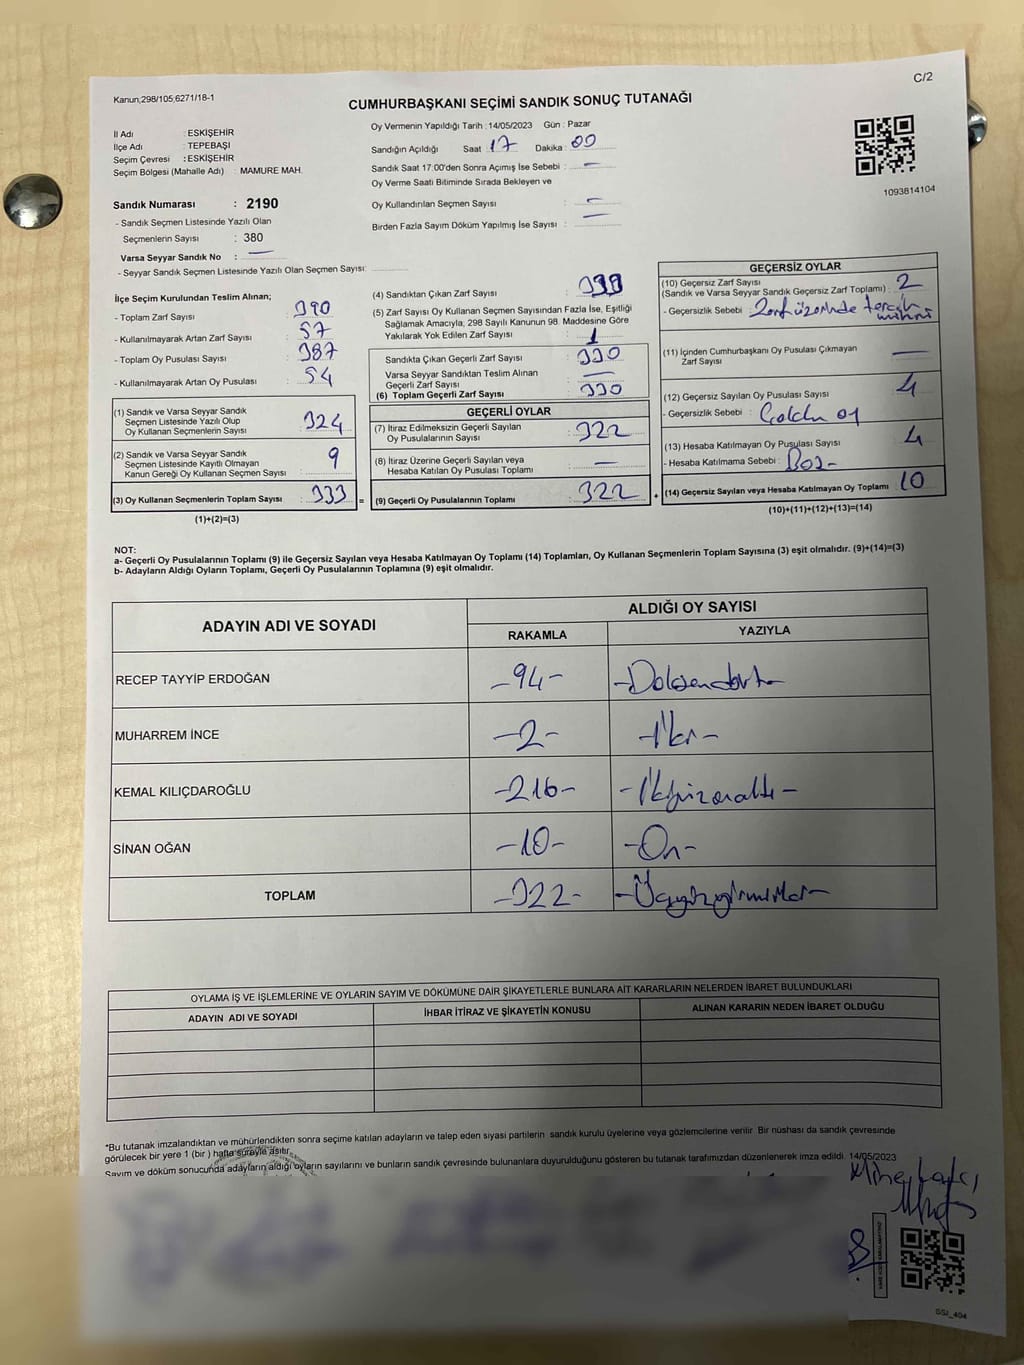 C/2
Kanun;298/105;6271/18-1
CUMHURBAŞKANI SEÇİMİ SANDIK SONUÇ TUTANAĞI
İl Adı : ESKİŞEHİR
İlçe Adı : TEPEBAŞI
Seçim Çevresi : ESKİŞEHİR
Seçim Bölgesi (Mahalle Adı) : MAMURE MAH.
Sandık Numarası : 2190
- Sandık Seçmen Listesinde Yazılı Olan
Seçmenlerin Sayısı : 380
Varsa Seyyar Sandık No : —
- Seyyar Sandık Seçmen Listesinde Yazılı Olan Seçmen Sayısı:
Oy Vermenin Yapıldığı Tarih : 14/05/2023 Gün : Pazar
Sandığın Açıldığı Saat : 17 Dakika : 00
Sandık Saat 17:00'den Sonra Açımış İse Sebebi : —
Oy Verme Saati Bitiminde Sırada Bekleyen ve
Oy Kullandırılan Seçmen Sayısı : —
Birden Fazla Sayım Döküm Yapılmış İse Sayısı : —
1093814104
İlçe Seçim Kurulundan Teslim Alınan;
- Toplam Zarf Sayısı : 390
- Kullanılmayarak Artan Zarf Sayısı : 57
- Toplam Oy Pusulası Sayısı : 387
- Kullanılmayarak Artan Oy Pusulası : 54
(1) Sandık ve Varsa Seyyar Sandık
Seçmen Listesinde Yazılı Olup
Oy Kullanan Seçmenlerin Sayısı : 324
(2) Sandık ve Varsa Seyyar Sandık
Seçmen Listesinde Kayıtlı Olmayan
Kanun Gereği Oy Kullanan Seçmen Sayısı : 9
(3) Oy Kullanan Seçmenlerin Toplam Sayısı : 333 =
(1)+(2)=(3)
(4) Sandıktan Çıkan Zarf Sayısı :
(5) Zarf Sayısı Oy Kullanan Seçmen Sayısından Fazla İse, Eşitliği
Sağlamak Amacıyla, 298 Sayılı Kanunun 98. Maddesine Göre
Yakılarak Yok Edilen Zarf Sayısı : 1
Sandıkta Çıkan Geçerli Zarf Sayısı : 330
Varsa Seyyar Sandıktan Teslim Alınan
Geçerli Zarf Sayısı : —
(6) Toplam Geçerli Zarf Sayısı : 330
GEÇERLİ OYLAR
(7) İtiraz Edilmeksizin Geçerli Sayılan
Oy Pusulalarının Sayısı : 322
(8) İtiraz Üzerine Geçerli Sayılan veya
Hesaba Katılan Oy Pusulası Toplamı : —
(9) Geçerli Oy Pusulalarının Toplamı : 322 +
GEÇERSİZ OYLAR
(10) Geçersiz Zarf Sayısı
(Sandık ve Varsa Seyyar Sandık Geçersiz Zarf Toplamı) : 2
- Geçersizlik Sebebi : Zarf üzerinde tercih mührü
(11) İçinden Cumhurbaşkanı Oy Pusulası Çıkmayan
Zarf Sayısı : —
(12) Geçersiz Sayılan Oy Pusulası Sayısı : 4
- Geçersizlik Sebebi : oy
(13) Hesaba Katılmayan Oy Pusulası Sayısı : 4
- Hesaba Katılmama Sebebi : Boş-
(14) Geçersiz Sayılan veya Hesaba Katılmayan Oy Toplamı : 10
(10)+(11)+(12)+(13)=(14)
NOT:
a- Geçerli Oy Pusulalarının Toplamı (9) ile Geçersiz Sayılan veya Hesaba Katılmayan Oy Toplamı (14) Toplamları, Oy Kullanan Seçmenlerin Toplam Sayısına (3) eşit olmalıdır. (9)+(14)=(3)
b- Adayların Aldığı Oyların Toplamı, Geçerli Oy Pusulalarının Toplamına (9) eşit olmalıdır.
ADAYIN ADI VE SOYADI ALDIĞI OY SAYISI
RAKAMLA YAZIYLA
RECEP TAYYİP ERDOĞAN -94- -Doksandört-
MUHARREM İNCE -2- -İki-
KEMAL KILIÇDAROĞLU -216- -İkiyüzonaltı-
SİNAN OĞAN -10- -On-
TOPLAM -322- -Üçyüzyirmiiki-
OYLAMA İŞ VE İŞLEMLERİNE VE OYLARIN SAYIM VE DÖKÜMÜNE DAİR ŞİKAYETLERLE BUNLARA AİT KARARLARIN NELERDEN İBARET BULUNDUKLARI
ADAYIN ADI VE SOYADI İHBAR İTİRAZ VE ŞİKAYETİN KONUSU ALINAN KARARIN NEDEN İBARET OLDUĞU
*Bu tutanak imzalandıktan ve mühürlendikten sonra seçime katılan adayların ve talep eden siyasi partilerin sandık kurulu üyelerine veya gözlemcilerine verilir. Bir nüshası da sandık çevresinde
görülecek bir yere 1 (bir) hafta süreyle asılır.
Sayım ve döküm sonucunda adayların aldığı oyların sayılarını ve bunların sandık çevresinde bulunanlara duyurulduğunu gösteren bu tutanak tarafımızdan düzenlenerek imza edildi. 14/05/2023